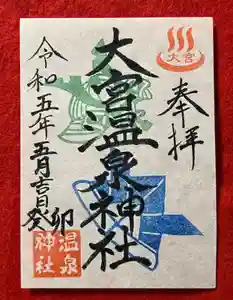 奉拝
大宮
大宮温泉神社
令和五年五月吉日
癸卯
温泉
神社